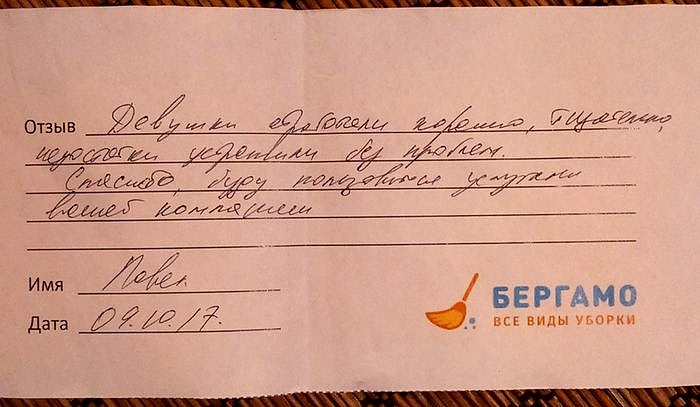 Отзыв Девушки отработали хорошо, тщательно,
недостатки устранили без проблем.
Спасибо, буду пользоваться услугами
вашей компании
Имя Павел
Дата 09.10.17.
БЕРГАМО
ВСЕ ВИДЫ УБОРКИ